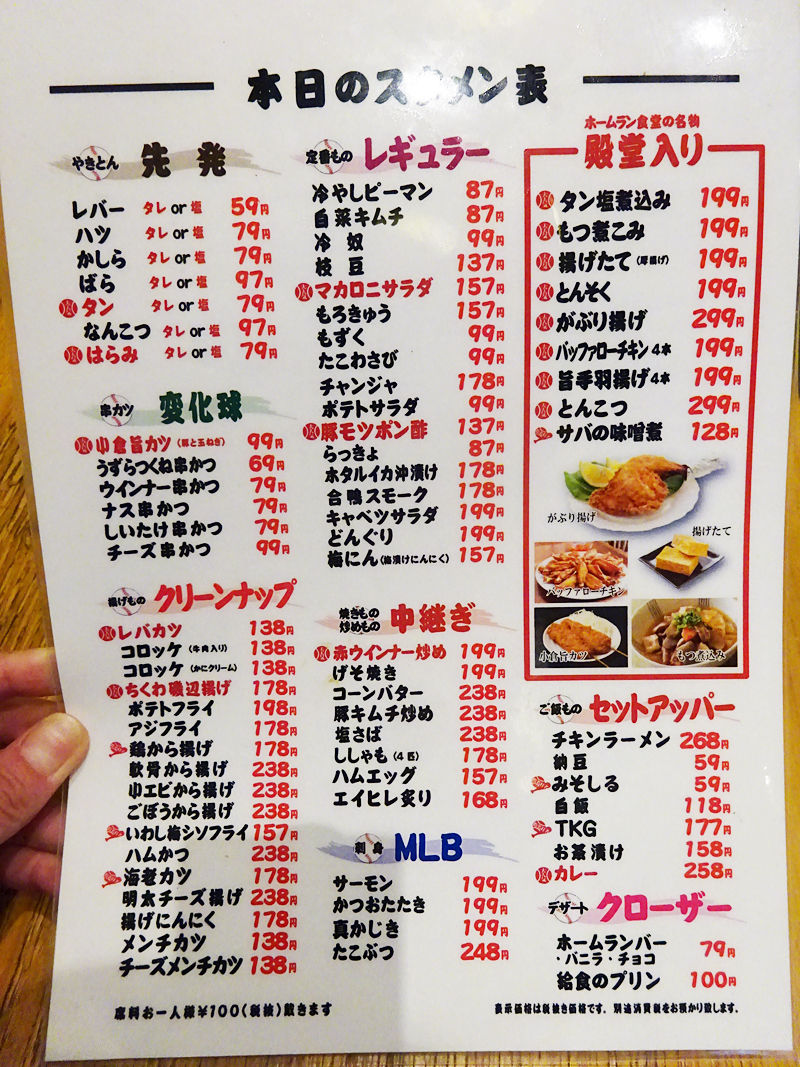 本日のスタメン表
やきとん 先発
レバー タレ or 塩 59円
ハツ タレ or 塩 79円
かしら タレ or 塩 79円
ばら タレ or 塩 97円
タン タレ or 塩 79円
なんこつ タレ or 塩 97円
はらみ タレ or 塩 79円
串カツ 変化球
小倉旨カツ(豚と玉ねぎ) 99円
うずらつくね串かつ 69円
ウインナー串かつ 79円
ナス串かつ 79円
しいたけ串かつ 79円
チーズ串かつ 99円
揚げもの クリーンナップ
レバカツ 138円
コロッケ(牛肉入り) 138円
コロッケ(かにクリーム) 138円
ちくわ磯辺揚げ 178円
ポテトフライ 198円
アジフライ 178円
鶏から揚げ 178円
軟骨から揚げ 238円
小エビから揚げ 238円
ごぼうから揚げ 238円
いわし梅シソフライ 157円
ハムかつ 238円
海老カツ 178円
明太チーズ揚げ 238円
揚げにんにく 178円
メンチカツ 138円
チーズメンチカツ 138円
席料お一人様¥100(税抜)戴きます
定番もの レギュラー
冷やしピーマン 87円
白菜キムチ 87円
冷奴 99円
枝豆 137円
マカロニサラダ 157円
もろきゅう 157円
もずく 99円
たこわさび 99円
チャンジャ 178円
ポテトサラダ 99円
豚モツポン酢 137円
らっきょ 87円
ホタルイカ沖漬け 178円
合鴨スモーク 178円
キャベツサラダ 199円
どんぐり 199円
梅にん(梅漬けにんにく) 157円
焼きもの 炒めもの 中継ぎ
赤ウインナー炒め 199円
げそ焼き 199円
コーンバター 238円
豚キムチ炒め 238円
塩さば 238円
ししゃも(4匹) 178円
ハムエッグ 157円
エイヒレ炙り 168円
刺身 MLB
サーモン 199円
かつおたたき 199円
真かじき 199円
たこぶつ 248円
ホームラン食堂の名物
殿堂入り
タン塩煮込み 199円
もつ煮こみ 199円
揚げたて(厚揚げ) 199円
とんそく 199円
がぶり揚げ 299円
バッファローチキン4本 199円
旨手羽揚げ4本 199円
とんこつ 299円
サバの味噌煮 128円
がぶり揚げ
揚げたて
バッファローチキン
小倉旨カツ
もつ煮込み
ご飯もの セットアッパー
チキンラーメン 268円
納豆 59円
みそしる 59円
白飯 118円
TKG 177円
お茶漬け 158円
カレー 258円
デザート クローザー
ホームランバー
・バニラ・チョコ 79円
給食のプリン 100円
表示価格は税抜き価格です。別途消費税をお預かり致します。